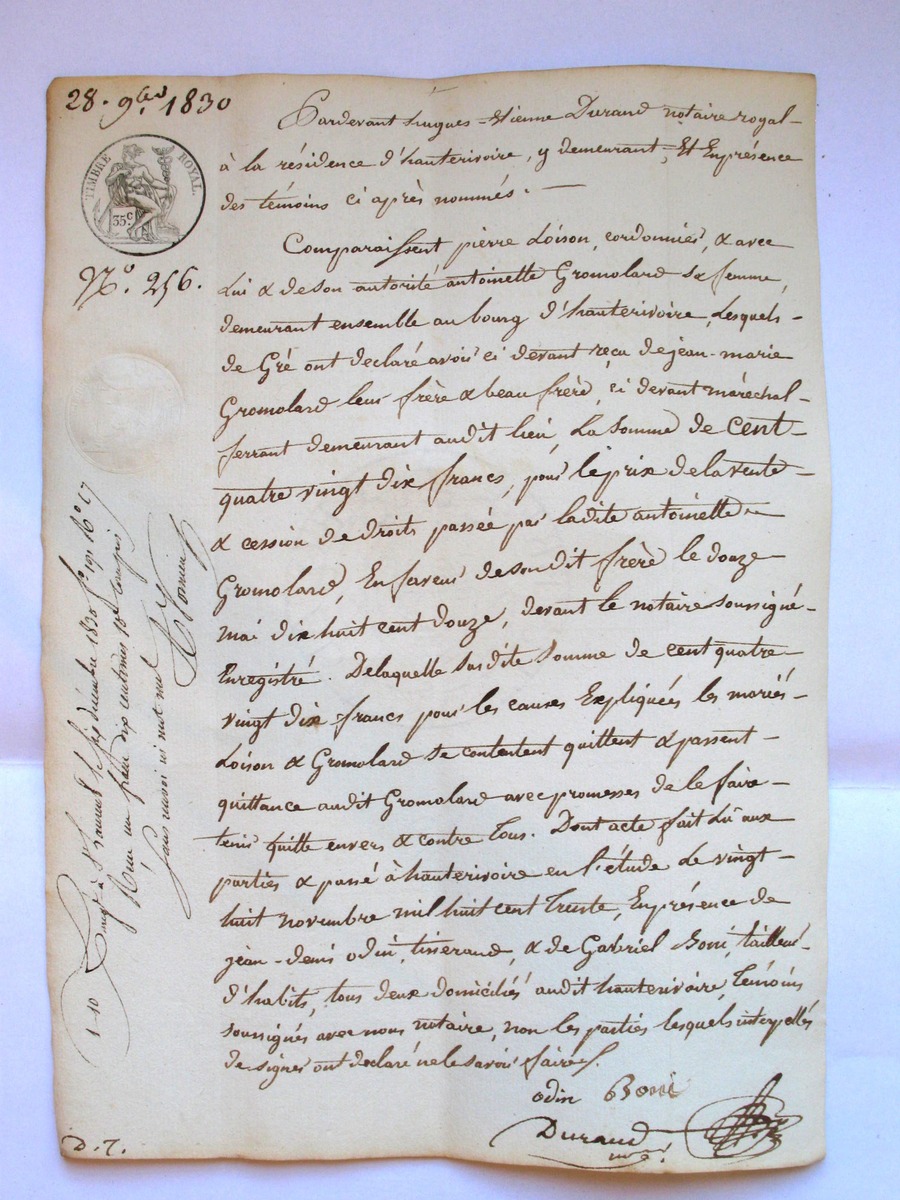 28. 9bre 1830
TIMBRE ROYAL.
35c.
N° 256.
Pardevant hugues-Etienne Durand notaire royal-
à la résidence d'hauterivoire, y demeurant, Et Enprésence
des témoins ci après nommés. —
Comparaissent pierre Loison, cordonnier, & avec
Lui & de son autorité antoinette Gromolard sa femme,
demeurant ensemble au bourg d'hauterivoire, Lesquels-
de Gré ont declaré avoir ci devant reçu de jean-marie
Gromolard leur frère & beau frère, ci devant maréchal-
ferrant demeurant audit lieu, La Somme de cent-
quatre vingt dix francs, pour le prix de la vente-
& cession de droits passée par ladite antoinette
Gromolard, En faveur de son dit frère le douze
mai dix huit cent douze, devant le notaire soussigné-
Enregistré. Delaquelle susdite Somme de cent quatre-
vingt dix francs pour les causes Expliquées les mariés-
Loison & Gromolard se contentent quittent & passent-
quittance audit Gromolard avec promesses de le faire-
tenir quitte envers & contre Tous. Dont acte fait Lû aux
parties & passé à hauterivoire en l'étude Le vingt-
huit novembre mil huit cent Trente, Enprésence de
jean-denis odin, tisserand, & de Gabriel Boni, tailleur-
d'habits, tous deux domiciliés audit hauterivoire, Témoins
soussignés avec nous notaire, non les parties lesquels interpellés
de signer ont declaré ne le savoir faire.
odin Boni
Durand
nre
Enregé à St Laurent le six décembre 1830 f° 191 R° c 7
Reçu un franc dix centimes 10e compris
sans renvoi ni mot nul
1-10
D. T.